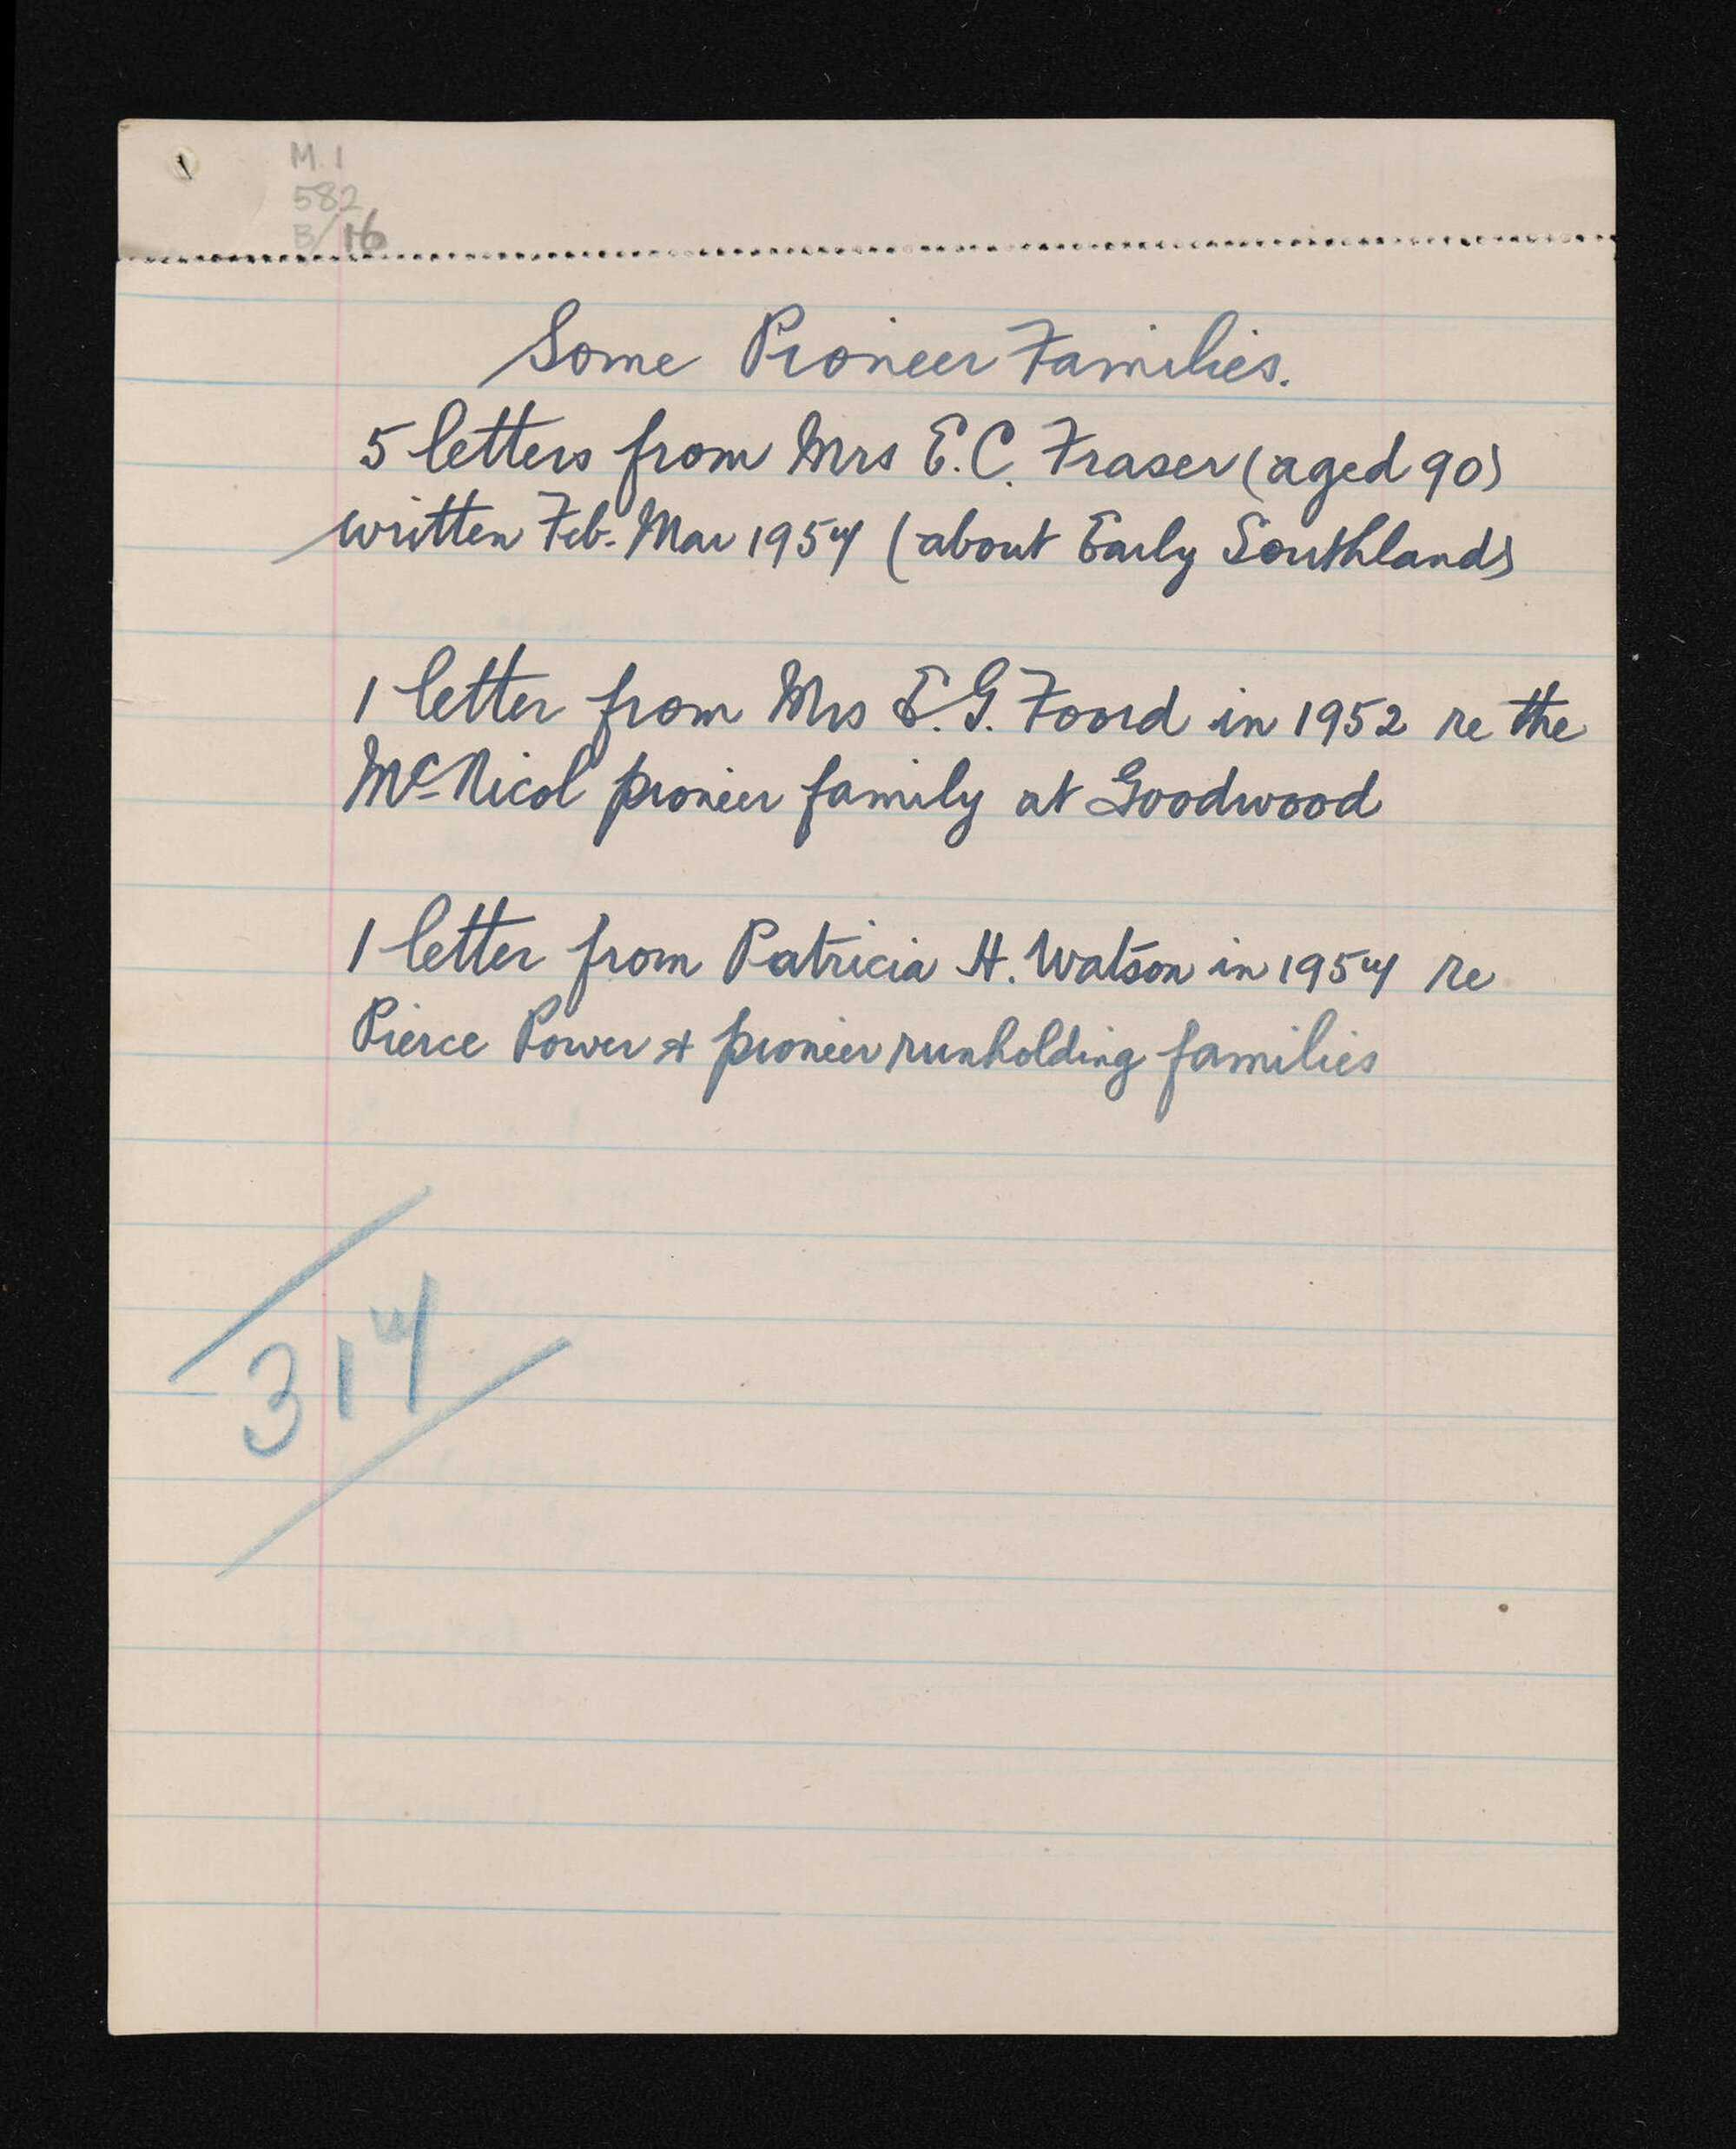 M.1
582
B/16
Some Pioneer Families.
5 letters from Mrs E.C. Fraser (aged 90)
written Feb-Mar 1954 (about Early Southland)
1 letter from Mrs E.G. Foord in 1952 re the
McNicol pioneer family at Goodwood
1 letter from Patricia H. Watson in 1954 re
Pierce Power & pioneer runholding families
314